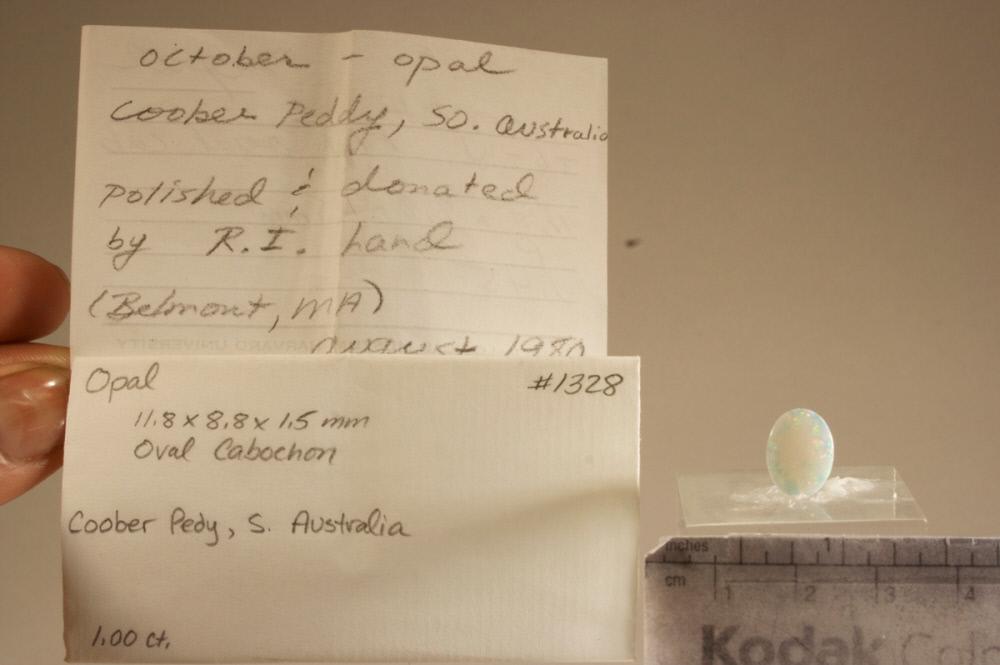 October - opal
Coober Peddy, So. Australia
polished & donated
by R.I. hand
(Belmont, MA)
August 1980
HARVARD UNIVERSITY
Opal #1328
11.8 x 8.8 x 1.5 mm
Oval Cabochon
Coober Pedy, S. Australia
1.00 ct.
inches 1
cm 1 2 3 4
Kodak Colo